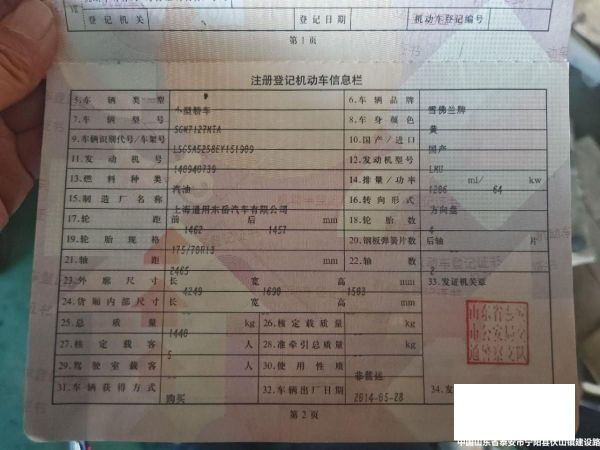 登记机关
登记日期
机动车登记编号
第1页
注册登记机动车信息栏
5.车辆类型 小型轿车 6.车辆品牌 雪佛兰牌
7.车辆型号 SGM7127MTA 8.车身颜色 黄
9.车辆识别代号/车架号 10.国产/进口 国产
11.发动机号 140940739 12.发动机型号 LMU
13.燃料种类 汽油 14.排量/功率 1206 ml/ 64 kw
15.制造厂名称 上海通用东岳汽车有限公司 16.转向形式 方向盘
17.轮距 前 1462 后 1457 mm 18.轮胎数 4
19.轮胎规格 175/70R13 20.钢板弹簧片数 后轴 片
21.轴距 2465 mm 22.轴数 2
23.外廓尺寸 长 4249 宽 1690 高 1503 mm 33.发证机关章
24.货厢内部尺寸 长 宽 高 mm
25.总质量 1440 kg 26.核定载质量 kg
27.核定载客 5 人 28.准牵引总质量 kg
29.驾驶室载客 人 30.使用性质 非营运
31.车辆获得方式 购买 32.车辆出厂日期 2014-05-28 34.发
第2页
中国山东省泰安市宁阳县伏山镇建设路